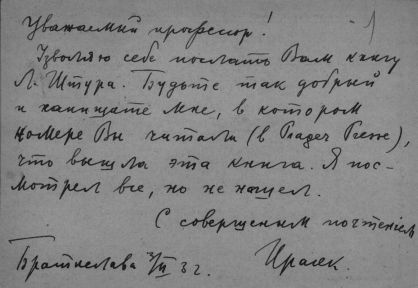 Уважаемий професор!
Изволяю себе послать Вам книгу
Л. Штура. Будьте так добрый
и напищате мне, в котором
номере Вы читали (в Prager Presse),
что вышла эта книга. Я пос-
мотрел все, но не нашел.
С совершеним почтением
Братислава 3/VI 3 г. Ирасек.